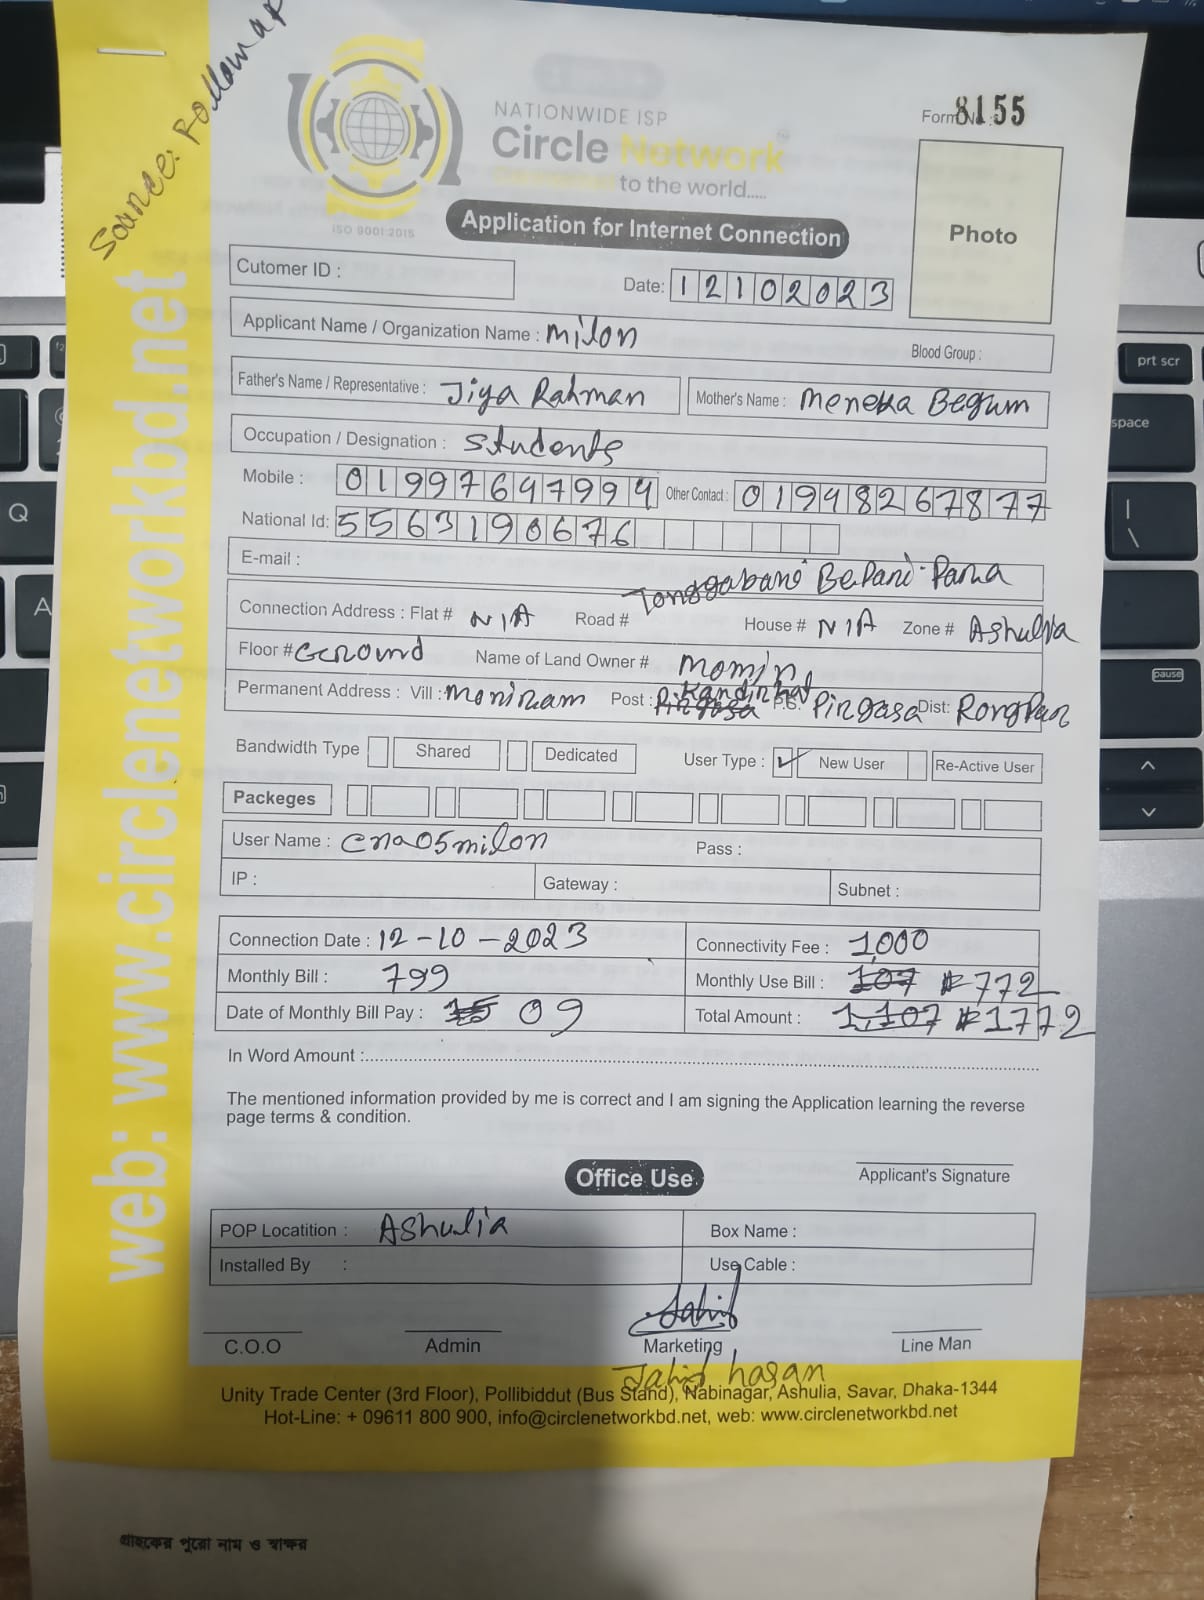 Source: Follow up
NATIONWIDE ISP
Circle Network
to the world.....
ISO 9001:2015
Form No : 8155
Application for Internet Connection
Photo
Cutomer ID :
Date: 12102023
Applicant Name / Organization Name : Milon
Blood Group :
Father's Name / Representative : Jiya Rahman Mother's Name : Meneka Begum
Occupation / Designation : Students
Mobile : 01997647994 Other Contact : 01948267877
National Id: 5563190676
E-mail :
Connection Address : Flat # N/A Road # Tonggabari Bepari Para House # N/A Zone # Ashulia
Floor # Ground Name of Land Owner # Momin
Permanent Address : Vill : Moniram Post : Kandirhat P.S: Pirgasa Dist: Rongpur
Bandwidth Type Shared Dedicated User Type : ✓ New User Re-Active User
Packeges
User Name : cna05milon Pass :
IP : Gateway : Subnet :
Connection Date : 12-10-2023 Connectivity Fee : 1,000
Monthly Bill : 799 Monthly Use Bill : 107 772
Date of Monthly Bill Pay : 15 09 Total Amount : 1,107 1772
In Word Amount :
The mentioned information provided by me is correct and I am signing the Application learning the reverse
page terms & condition.
Office Use
Applicant's Signature
POP Locatition : Ashulia Box Name :
Installed By : Use Cable :
Jahid
C.O.O Admin Marketing Line Man
Jahid hasan
Unity Trade Center (3rd Floor), Pollibiddut (Bus Stand), Nabinagar, Ashulia, Savar, Dhaka-1344
Hot-Line: + 09611 800 900, info@circlenetworkbd.net, web: www.circlenetworkbd.net
web: www.circlenetworkbd.net
গ্রাহকের পুরো নাম ও স্বাক্ষর
prt scr
space
pause
Q
A